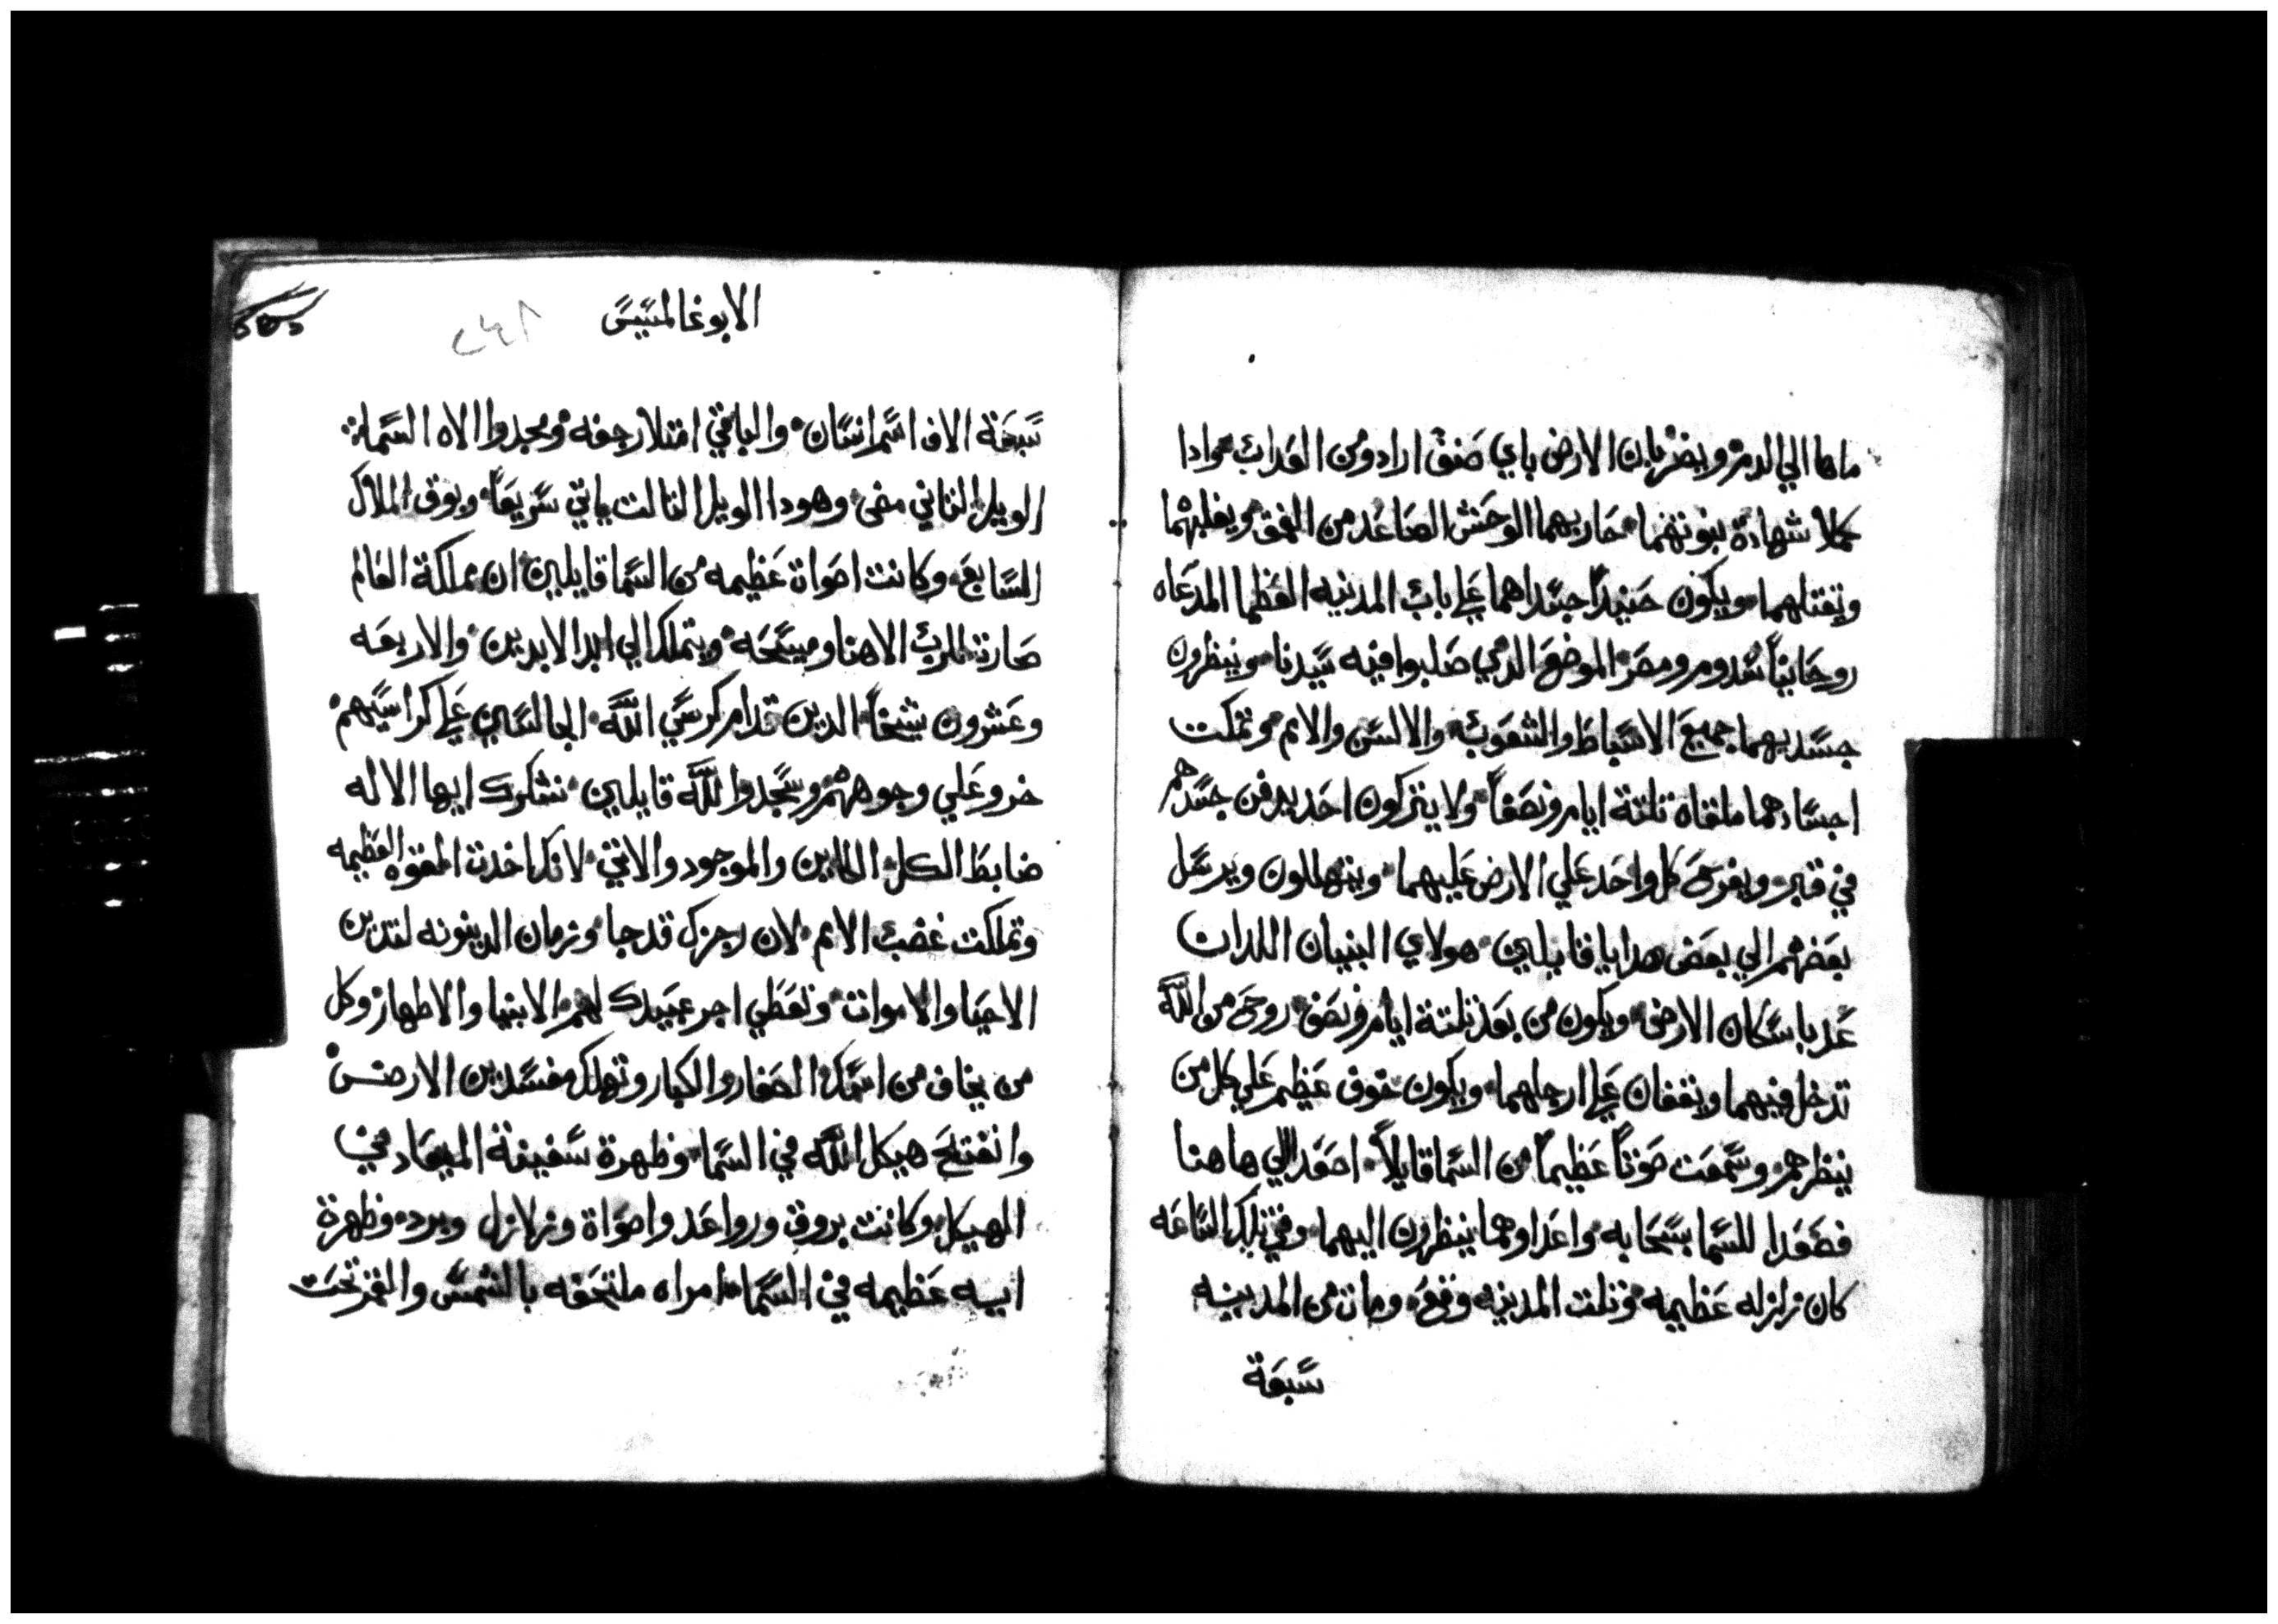 ماها الي الدم ويضربان الارض باي صنف ارادو من العداب وادا
كملا شهادة نبوتهما حاربهما الوحش الصاعد من العمق ويغلبهما
ويقتلهما ويكون حنيدا جسداهما علي باب المدينه العظما المدعاه
روحانيا سدوم ومصر الموضع الدي صلبوا فيه سيدنا وينظرون
جسديهما جميع الاسباط والشعوب والالسن والامم وتمكت
اجسادهما ملقاه تلتة ايام ونصفا ولا يتركون احد يدفن جسدهم
في قبر ويفرح كل واحد علي الارض عليهما ويتهللون ويرسل
بعضهم الي بعض هدايا قايلين هولاي النبيان اللدان
عدبا سكان الارض ويكون من بعد تلتة ايام ونصف روح من الله
تدخل فيهما ويقفان علي ارجلهما ويكون خوف عظيم علي كل من
ينظرهم وسمعت صوتا عظيما من السما قايلا اصعدا الي هاهنا
فصعدا للسما بسحابه واعداوهما ينظرون اليهما وفي تلك الساعه
كان زلزله عظيمه وتلت المدينه وقع ومات من المدينه
سبعة
الابوغالمسيس
٢٤٨
سبعة الاف اسم انسان والباقي امتلا رجفه ومجدوا الاه السما
الويل التاني مضي وهودا الويل التالت ياتي سريعا وبوق الملاك
السابع وكانت اصواة عظيمه من السما قايلين ان مملكة العالم
صارت للرب الاهنا ومسيحه ويتملك الي ابد الابدين والاربعه
وعشرون شيخا الدين قدام كرسي الله الجالسين علي كراسيهم
خرو علي وجوههم وسجدوا لله قايلين نشكرك ايها الاله
ضابط الكل الكاين والموجود والاتي لانك اخدت القوه العظيمه
وتملكت غضب الامم لان رجزك قد جا وزمان الدينونه لتدين
الاحيا والاموات وتعطي اجر عبيدك لهم الانبيا والاطهار وكل
من يخاف من اسمك الصغار والكبار وتهلك مفسدين الارض
وانفتح هيكل الله في السما وظهرة سفينة الميعاد في
الهيكل وكانت بروق ورواعد واصواة وزلازل وبرد وظهرة
ايه عظيمه في السما امراه ملتحفه بالشمس والقمر تحت